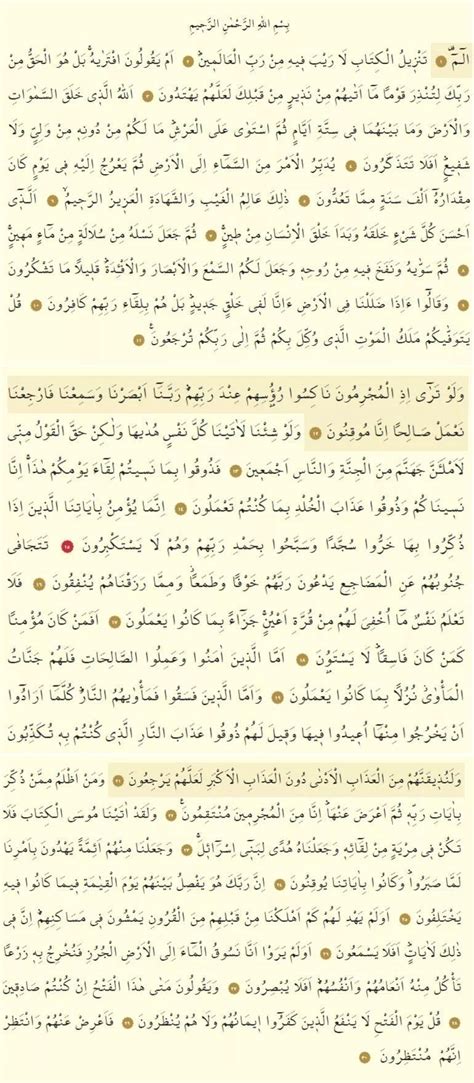 بِسْمِ اللّٰهِ الرَّحْمٰنِ الرَّحٖيمِ
الٓمٓۚ ﴿١﴾ تَنْزٖيلُ الْكِتَابِ لَا رَيْبَ فٖيهِ مِنْ رَبِّ الْعَالَمٖينَۜ ﴿٢﴾ اَمْ يَقُولُونَ افْتَرٰيهُۚ بَلْ هُوَ الْحَقُّ مِنْ
رَبِّكَ لِتُنْذِرَ قَوْمًا مَٓا اَتٰيهُمْ مِنْ نَذٖيرٍ مِنْ قَبْلِكَ لَعَلَّهُمْ يَهْتَدُونَ ﴿٣﴾ اَللّٰهُ الَّذٖي خَلَقَ السَّمٰوَاتِ
وَالْاَرْضَ وَمَا بَيْنَهُمَا فٖي سِتَّةِ اَيَّامٍ ثُمَّ اسْتَوٰى عَلَى الْعَرْشِۜ مَا لَكُمْ مِنْ دُونِهٖ مِنْ وَلِيٍّ وَلَا
شَفٖيعٍۜ اَفَلَا تَتَذَكَّرُونَ ﴿٤﴾ يُدَبِّرُ الْاَمْرَ مِنَ السَّمَٓاءِ اِلَى الْاَرْضِ ثُمَّ يَعْرُجُ اِلَيْهِ فٖي يَوْمٍ كَانَ
مِقْدَارُهُٓ اَلْفَ سَنَةٍ مِمَّا تَعُدُّونَ ﴿٥﴾ ذٰلِكَ عَالِمُ الْغَيْبِ وَالشَّهَادَةِ الْعَزٖيزُ الرَّحٖيمُۙ ﴿٦﴾ اَلَّذٖٓي
اَحْسَنَ كُلَّ شَيْءٍ خَلَقَهُ وَبَدَاَ خَلْقَ الْاِنْسَانِ مِنْ طٖينٍۚ ﴿٧﴾ ثُمَّ جَعَلَ نَسْلَهُ مِنْ سُلَالَةٍ مِنْ مَٓاءٍ مَهٖينٍۚ
﴿٨﴾ ثُمَّ سَوّٰيهُ وَنَفَخَ فٖيهِ مِنْ رُوحِهٖ وَجَعَلَ لَكُمُ السَّمْعَ وَالْاَبْصَارَ وَالْاَفْـِٔدَةَۜ قَلٖيلًا مَا تَشْكُرُونَ
﴿٩﴾ وَقَالُٓوا ءَاِذَا ضَلَلْنَا فِي الْاَرْضِ ءَاِنَّا لَفٖي خَلْقٍ جَدٖيدٍۜ بَلْ هُمْ بِلِقَٓاءِ رَبِّهِمْ كَافِرُونَ ﴿١٠﴾ قُلْ
يَتَوَفّٰيكُمْ مَلَكُ الْمَوْتِ الَّذٖي وُكِّلَ بِكُمْ ثُمَّ اِلٰى رَبِّكُمْ تُرْجَعُونَ۟ ﴿١١﴾
وَلَوْ تَرٰٓى اِذِ الْمُجْرِمُونَ نَاكِسُوا رُؤُ۫سِهِمْ عِنْدَ رَبِّهِمْۜ رَبَّـنَٓا اَبْصَرْنَا وَسَمِعْنَا فَارْجِعْنَا
نَعْمَلْ صَالِحًا اِنَّا مُوقِنُونَ ﴿١٢﴾ وَلَوْ شِئْنَا لَاٰتَيْنَا كُلَّ نَفْسٍ هُدٰيهَا وَلٰكِنْ حَقَّ الْقَوْلُ مِنّٖي
لَاَمْلَـَٔنَّ جَهَنَّمَ مِنَ الْجِنَّةِ وَالنَّاسِ اَجْمَعٖينَ ﴿١٣﴾ فَذُوقُوا بِمَا نَسٖيتُمْ لِقَٓاءَ يَوْمِكُمْ هٰذَاۚ اِنَّا
نَسٖينَاكُمْ وَذُوقُوا عَذَابَ الْخُلْدِ بِمَا كُنْتُمْ تَعْمَلُونَ ﴿١٤﴾ اِنَّمَا يُؤْمِنُ بِاٰيَاتِنَا الَّذٖينَ اِذَا
ذُكِّرُوا بِهَا خَرُّوا سُجَّدًا وَسَبَّحُوا بِحَمْدِ رَبِّهِمْ وَهُمْ لَا يَسْتَكْبِرُونَ ﴿١٥﴾ تَتَجَافٰى
جُنُوبُهُمْ عَنِ الْمَضَاجِعِ يَدْعُونَ رَبَّهُمْ خَوْفًا وَطَمَعًاۘ وَمِمَّا رَزَقْنَاهُمْ يُنْفِقُونَ ﴿١٦﴾ فَلَا
تَعْلَمُ نَفْسٌ مَٓا اُخْفِيَ لَهُمْ مِنْ قُرَّةِ اَعْيُنٍۚ جَزَٓاءً بِمَا كَانُوا يَعْمَلُونَ ﴿١٧﴾ اَفَمَنْ كَانَ مُؤْمِنًا
كَمَنْ كَانَ فَاسِقًاۜ لَا يَسْتَوُ۫نَ ﴿١٨﴾ اَمَّا الَّذٖينَ اٰمَنُوا وَعَمِلُوا الصَّالِحَاتِ فَلَهُمْ جَنَّاتُ
الْمَأْوٰىۘ نُزُلًا بِمَا كَانُوا يَعْمَلُونَ ﴿١٩﴾ وَاَمَّا الَّذٖينَ فَسَقُوا فَمَأْوٰيهُمُ النَّارُۜ كُلَّمَٓا اَرَادُٓوا
اَنْ يَخْرُجُوا مِنْهَٓا اُعٖيدُوا فٖيهَا وَقٖيلَ لَهُمْ ذُوقُوا عَذَابَ النَّارِ الَّذٖي كُنْتُمْ بِهٖ تُكَذِّبُونَ
وَلَنُذٖيقَنَّهُمْ مِنَ الْعَذَابِ الْاَدْنٰى دُونَ الْعَذَابِ الْاَكْبَرِ لَعَلَّهُمْ يَرْجِعُونَ ﴿٢١﴾ وَمَنْ اَظْلَمُ مِمَّنْ ذُكِّرَ
بِاٰيَاتِ رَبِّهٖ ثُمَّ اَعْرَضَ عَنْهَاۜ اِنَّا مِنَ الْمُجْرِمٖينَ مُنْتَقِمُونَ۟ ﴿٢٢﴾ وَلَقَدْ اٰتَيْنَا مُوسَى الْكِتَابَ فَلَا
تَكُنْ فٖي مِرْيَةٍ مِنْ لِقَٓائِهٖ وَجَعَلْنَاهُ هُدًى لِبَنٖٓي اِسْرَٓائٖلَۚ ﴿٢٣﴾ وَجَعَلْنَا مِنْهُمْ اَئِمَّةً يَهْدُونَ بِاَمْرِنَا
لَمَّا صَبَرُواۜ وَكَانُوا بِاٰيَاتِنَا يُوقِنُونَ ﴿٢٤﴾ اِنَّ رَبَّكَ هُوَ يَفْصِلُ بَيْنَهُمْ يَوْمَ الْقِيٰمَةِ فٖيمَا كَانُوا فٖيهِ
يَخْتَلِفُونَ ﴿٢٥﴾ اَوَلَمْ يَهْدِ لَهُمْ كَمْ اَهْلَكْنَا مِنْ قَبْلِهِمْ مِنَ الْقُرُونِ يَمْشُونَ فٖي مَسَاكِنِهِمْۜ اِنَّ فٖي
ذٰلِكَ لَاٰيَاتٍۜ اَفَلَا يَسْمَعُونَ ﴿٢٦﴾ اَوَلَمْ يَرَوْا اَنَّا نَسُوقُ الْمَٓاءَ اِلَى الْاَرْضِ الْجُرُزِ فَنُخْرِجُ بِهٖ زَرْعًا
تَأْكُلُ مِنْهُ اَنْعَامُهُمْ وَاَنْفُسُهُمْۜ اَفَلَا يُبْصِرُونَ ﴿٢٧﴾ وَيَقُولُونَ مَتٰى هٰذَا الْفَتْحُ اِنْ كُنْتُمْ صَادِقٖينَ
﴿٢٨﴾ قُلْ يَوْمَ الْفَتْحِ لَا يَنْفَعُ الَّذٖينَ كَفَرُٓوا اٖيمَانُهُمْ وَلَا هُمْ يُنْظَرُونَ ﴿٢٩﴾ فَاَعْرِضْ عَنْهُمْ وَانْتَظِرْ
اِنَّهُمْ مُنْتَظِرُونَ ﴿٣٠﴾